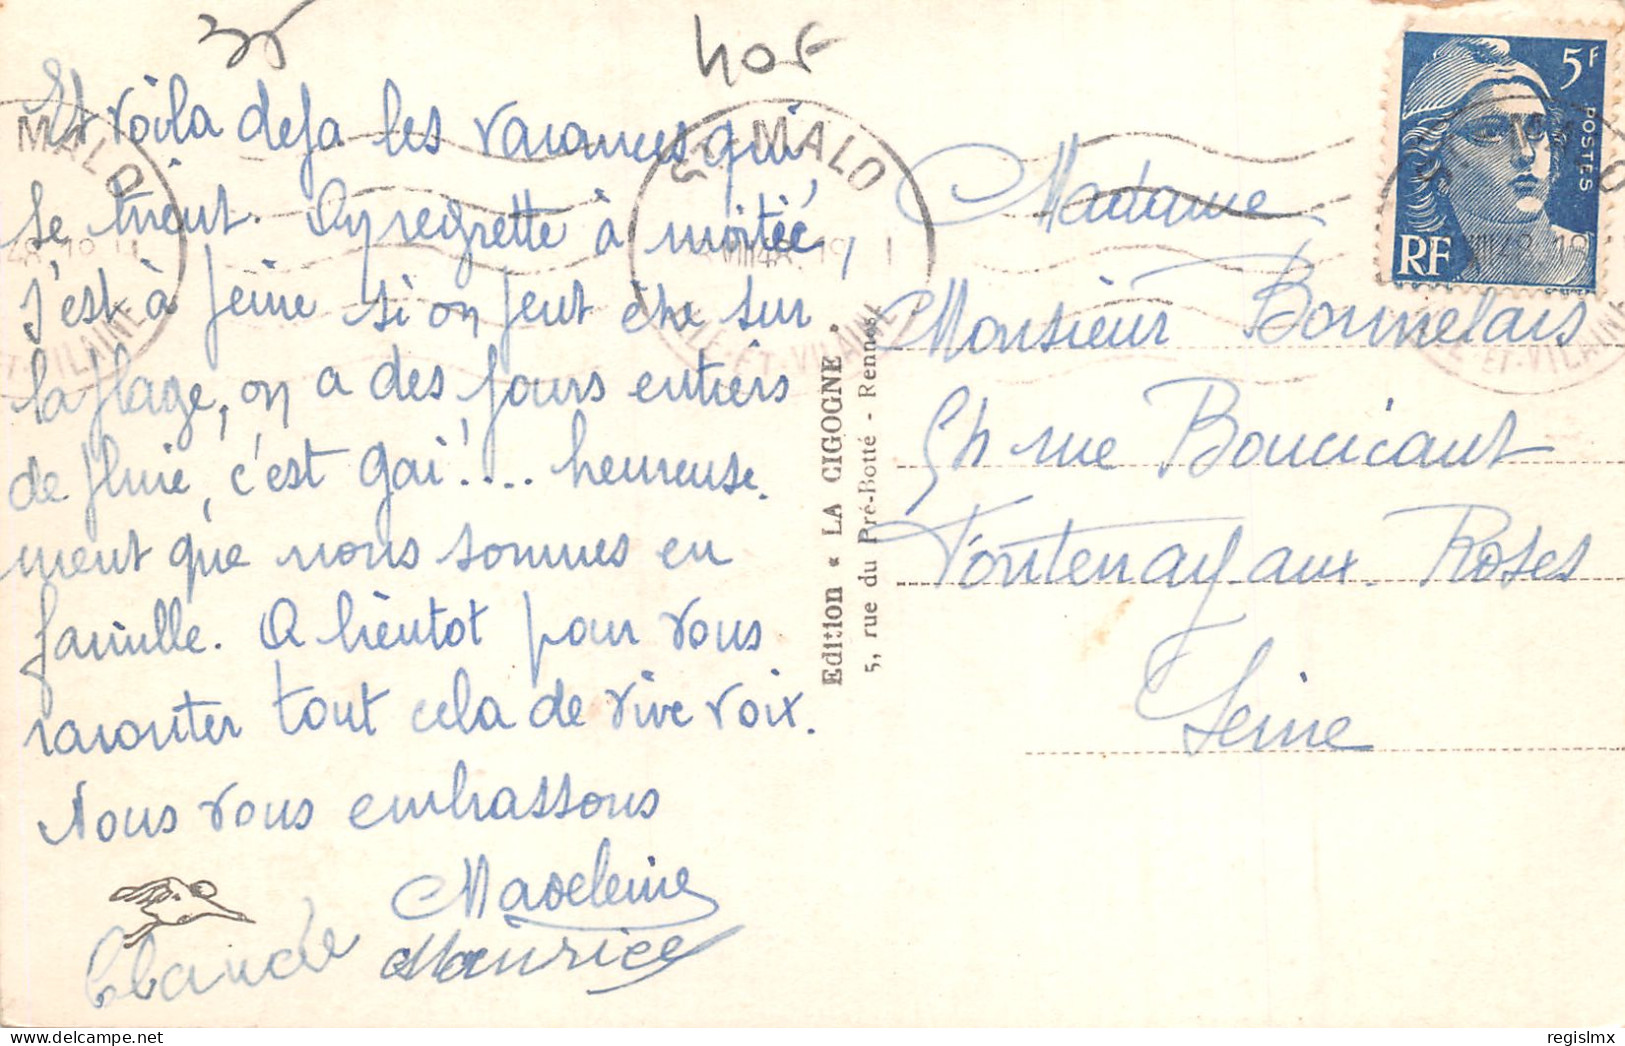 35
40F
Et voila deja les vacances qui
se tirent. On regrette à moitié,
c'est à peine si on peut être sur
la plage, on a des jours entiers
de pluie, c'est gai!.... heureuse.
ment que nous sommes en
famille. A bientôt pour vous
raconter tout cela de vive voix.
Nous vous embrassons
Madeleine
Claude Maurice
Edition « LA CIGOGNE »
5, rue du Pré-Botté - Rennes
ST MALO
VIII 48. 19
ILLE-ET-VILAINE
MALO
48. 19
ET-VILAINE
5F
POSTES
RF
VIII 48. 19
ET-VILAINE
Madame
Monsieur Bonnelais
rue Boucicaut
Fontenay-aux-Roses
Seine
regislmx